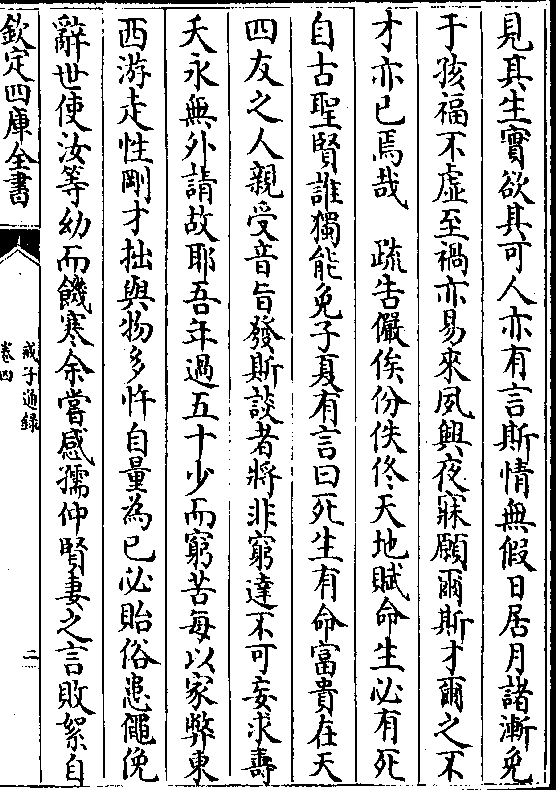 見其生實欲其可人亦有言斯情無假日居月諸漸免
于孩福不虛至禍亦易來夙興夜寐願爾斯才爾之不
才亦已焉哉　疏告儼俟份佚佟天地賦命生必有死
自古聖賢誰獨能免子夏有言曰死生有命富貴在天
四友之人親受音旨發斯談者將非窮達不可妄求壽
夭永無外請故耶吾年過五十少而窮苦每以家弊東
西游走性剛才拙與物多忤自量為已必貽俗患僶俛
辭世使汝等幼而饑寒余嘗感孺仲賢妻之言敗絮自
欽定四庫全書
戒子通録
卷四
二